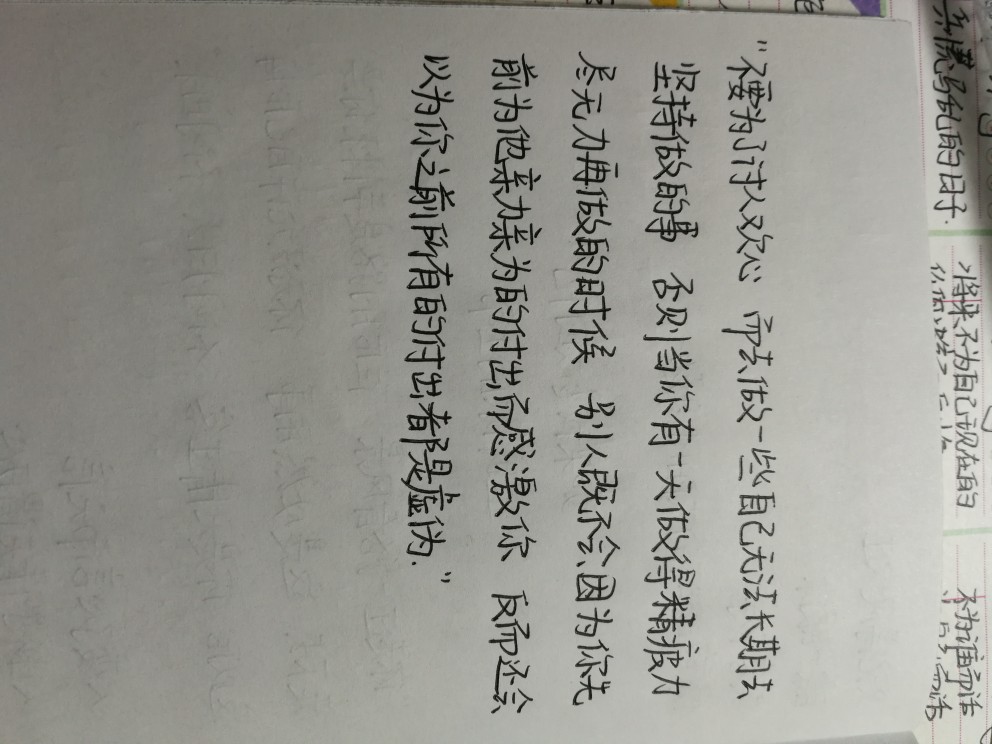 "不要为了讨人欢心 而去做一些自己无法长期去
坚持做的事 否则当你有一天做得精疲力
尽无力再做的时候 别人既不会因为你先
前为他亲力亲为的付出而感激你 反而还会
以为你之前所有的付出都是虚伪."
乱的日子.
将来不为自己现在的
不为谁而活